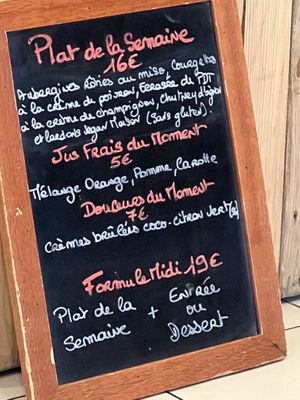 Plat de la Semaine
16€
Aubergines rôties au miso, Courgettes
à la crème de poivron, Écrasée de PDT
à la crème de champignon, Chutney d'oignon
et lardons vegan Maison (Sans gluten).
Jus Frais du Moment
5€
Mélange Orange, Pomme, Carotte
Douceurs du Moment
7€
Crèmes brûlées coco-citron vert
Formule Midi 19€
Plat de la Semaine + Entrée ou Dessert